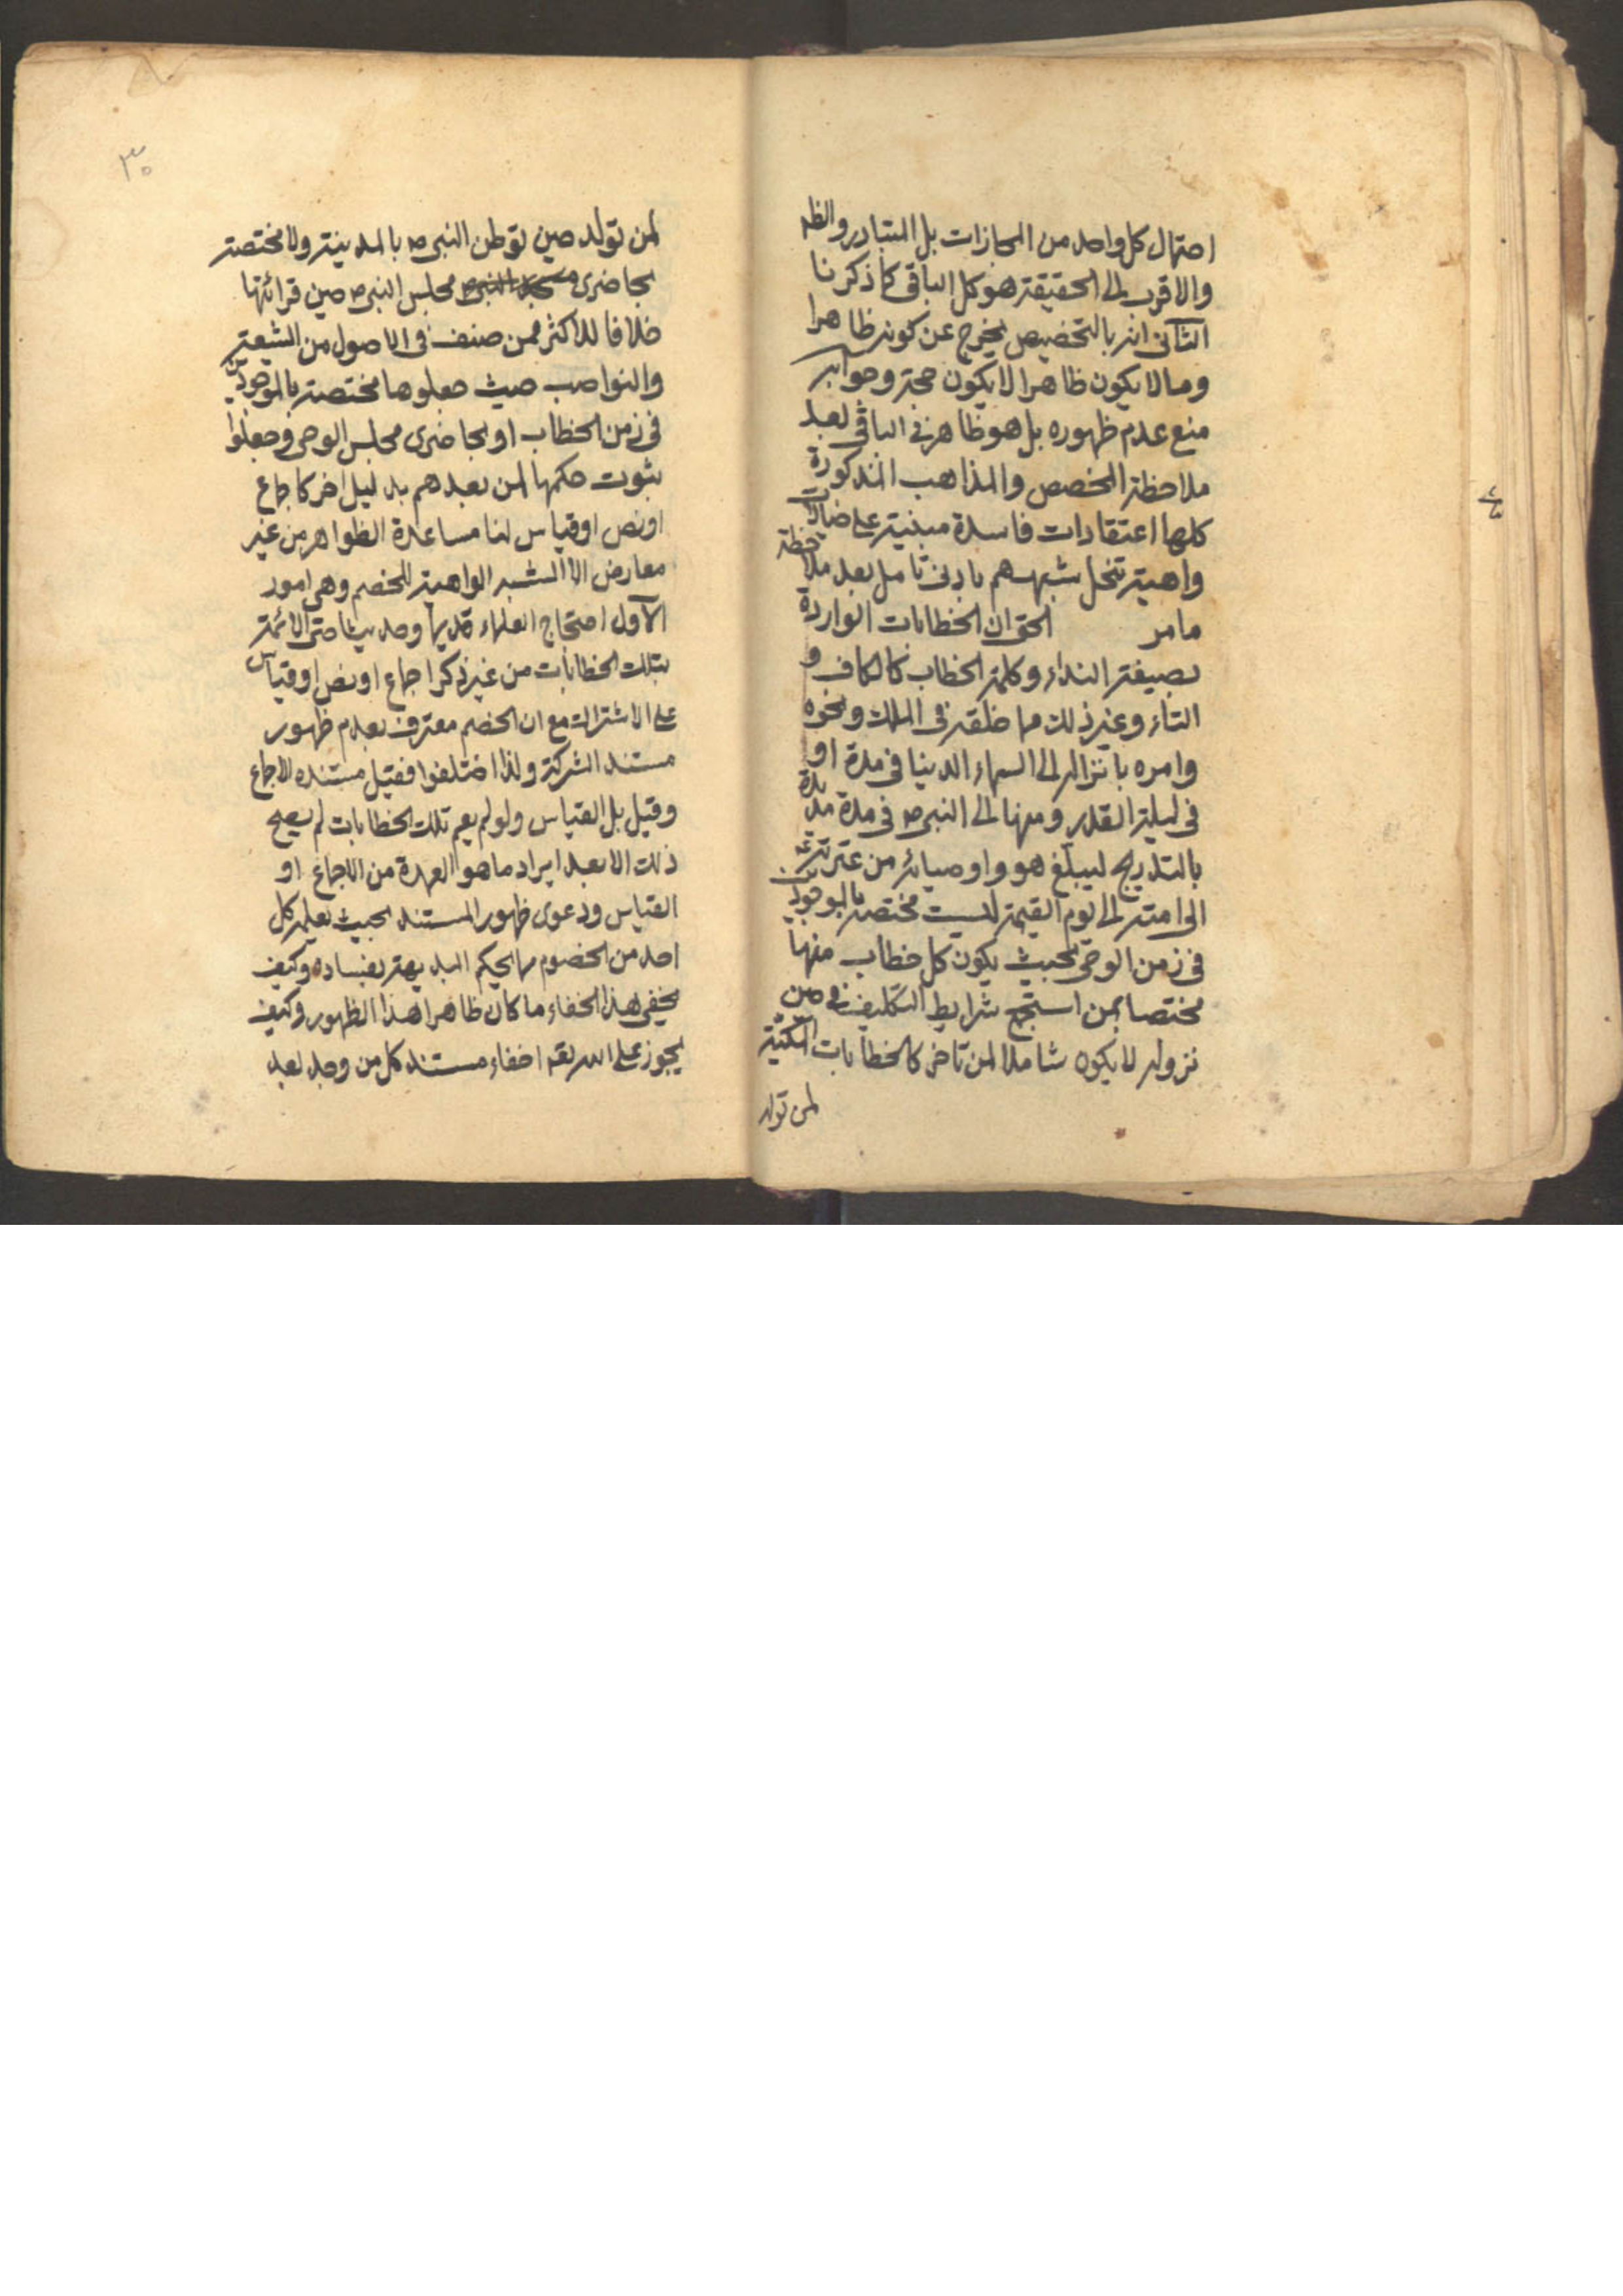 احتمال كل واحد من المجازات بل المتبادر والظ
والاقرب الى الحقيقة هو كل الباقى كما ذكرنا
الثانى انه بالتخصيص يخرج عن كونه ظاهرا
وما لا يكون ظاهرا لا يكون حجة وجوابه
منع عدم ظهوره بل هو ظاهر فى الباقى بعد
ملاحظة المخصص والمذاهب المذكورة
كلها اعتقادات فاسدة مبنية على خيالات
واهية تنحل شبههم بادنى تامل بعد ملاحظة
ما مر الحق ان الخطابات الواردة
بصيغة النداء وكلمة الخطاب كالكاف و
التاء وغير ذلك مما خلقه فى الملك ونحوه
وامره بانزاله الى السماء الدنيا فى مدة او
فى ليلة القدر ومنها الى النبى ص فى مدة مدة
بالتدريج ليبلغ هو واوصيائه من عترته
الى امته الى يوم القيمة ليست مختصة بالموجودين
فى زمن الوحى بحيث يكون كل خطاب منها
مختصا بمن استجمع شرايط التكليف فى حين
نزوله لا يكون شاملا لمن تاخر كالخطابات المكية
لمن تولد
٣٠
لمن تولد حين توطن النبى ص بالمدينة ولا مختصة
بحاضرى مسجد النبى ص مجلس النبى ص حين قرائتها
خلافا للاكثر ممن صنف فى الاصول من الشيعة
والنواصب حيث جعلوها مختصة بالموجودين
فى زمن الخطاب او بحاضرى مجلس الوحى وجعلوا
ثبوت حكمها لمن بعدهم بدليل اخر كاجماع
او نص او قياس لنا مساعدة الظواهر من غير
معارض الا الشبه الواهية للخصم وهى امور
الاول احتجاج العلماء قديما وحديثا حتى الائمة
بتلك الخطابات من غير ذكر اجماع او نص او قياس
على الاشتراك مع ان الخصم معترف بعدم ظهور
مستند الشركة ولذا اختلفوا فقيل مستنده الاجماع
وقيل بل القياس ولو لم يعم تلك الخطابات لم يصح
ذلك الا بعد ايراد ما هو العمدة من الاجماع او
القياس ودعوى ظهور المستند بحيث يعلمه كل
احد من الخصوم مما يحكم البديهة بفساده وكيف
يخفى هذا الخفاء ما كان ظاهرا هذا الظهور وكيف
يجوز على الله تعه اخفاء مستند كل من وجد بعد